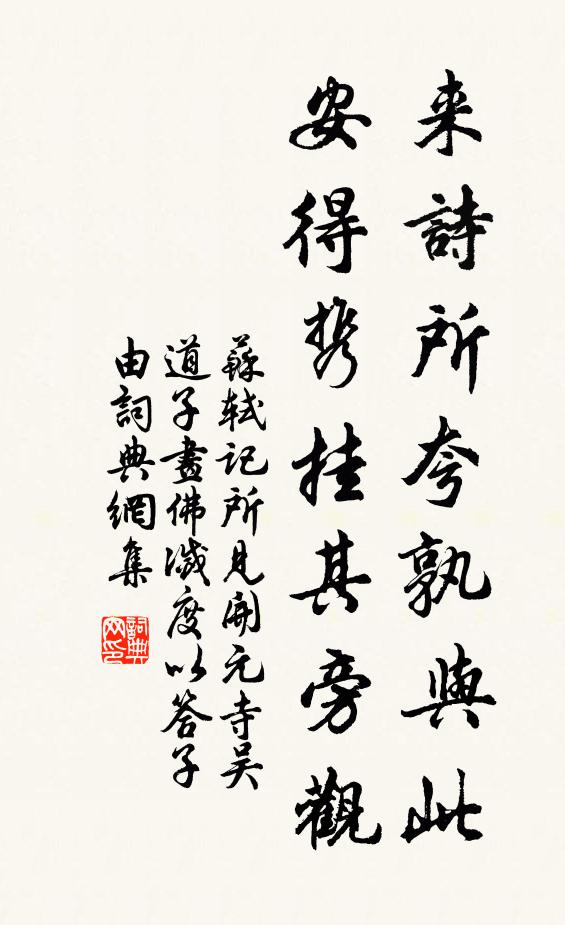 来詩所夸孰與此
安得携挂其旁觀
蘇軾记所見開元寺吴
道子畫佛滅度以答子
由詞典網集
詞典
网印